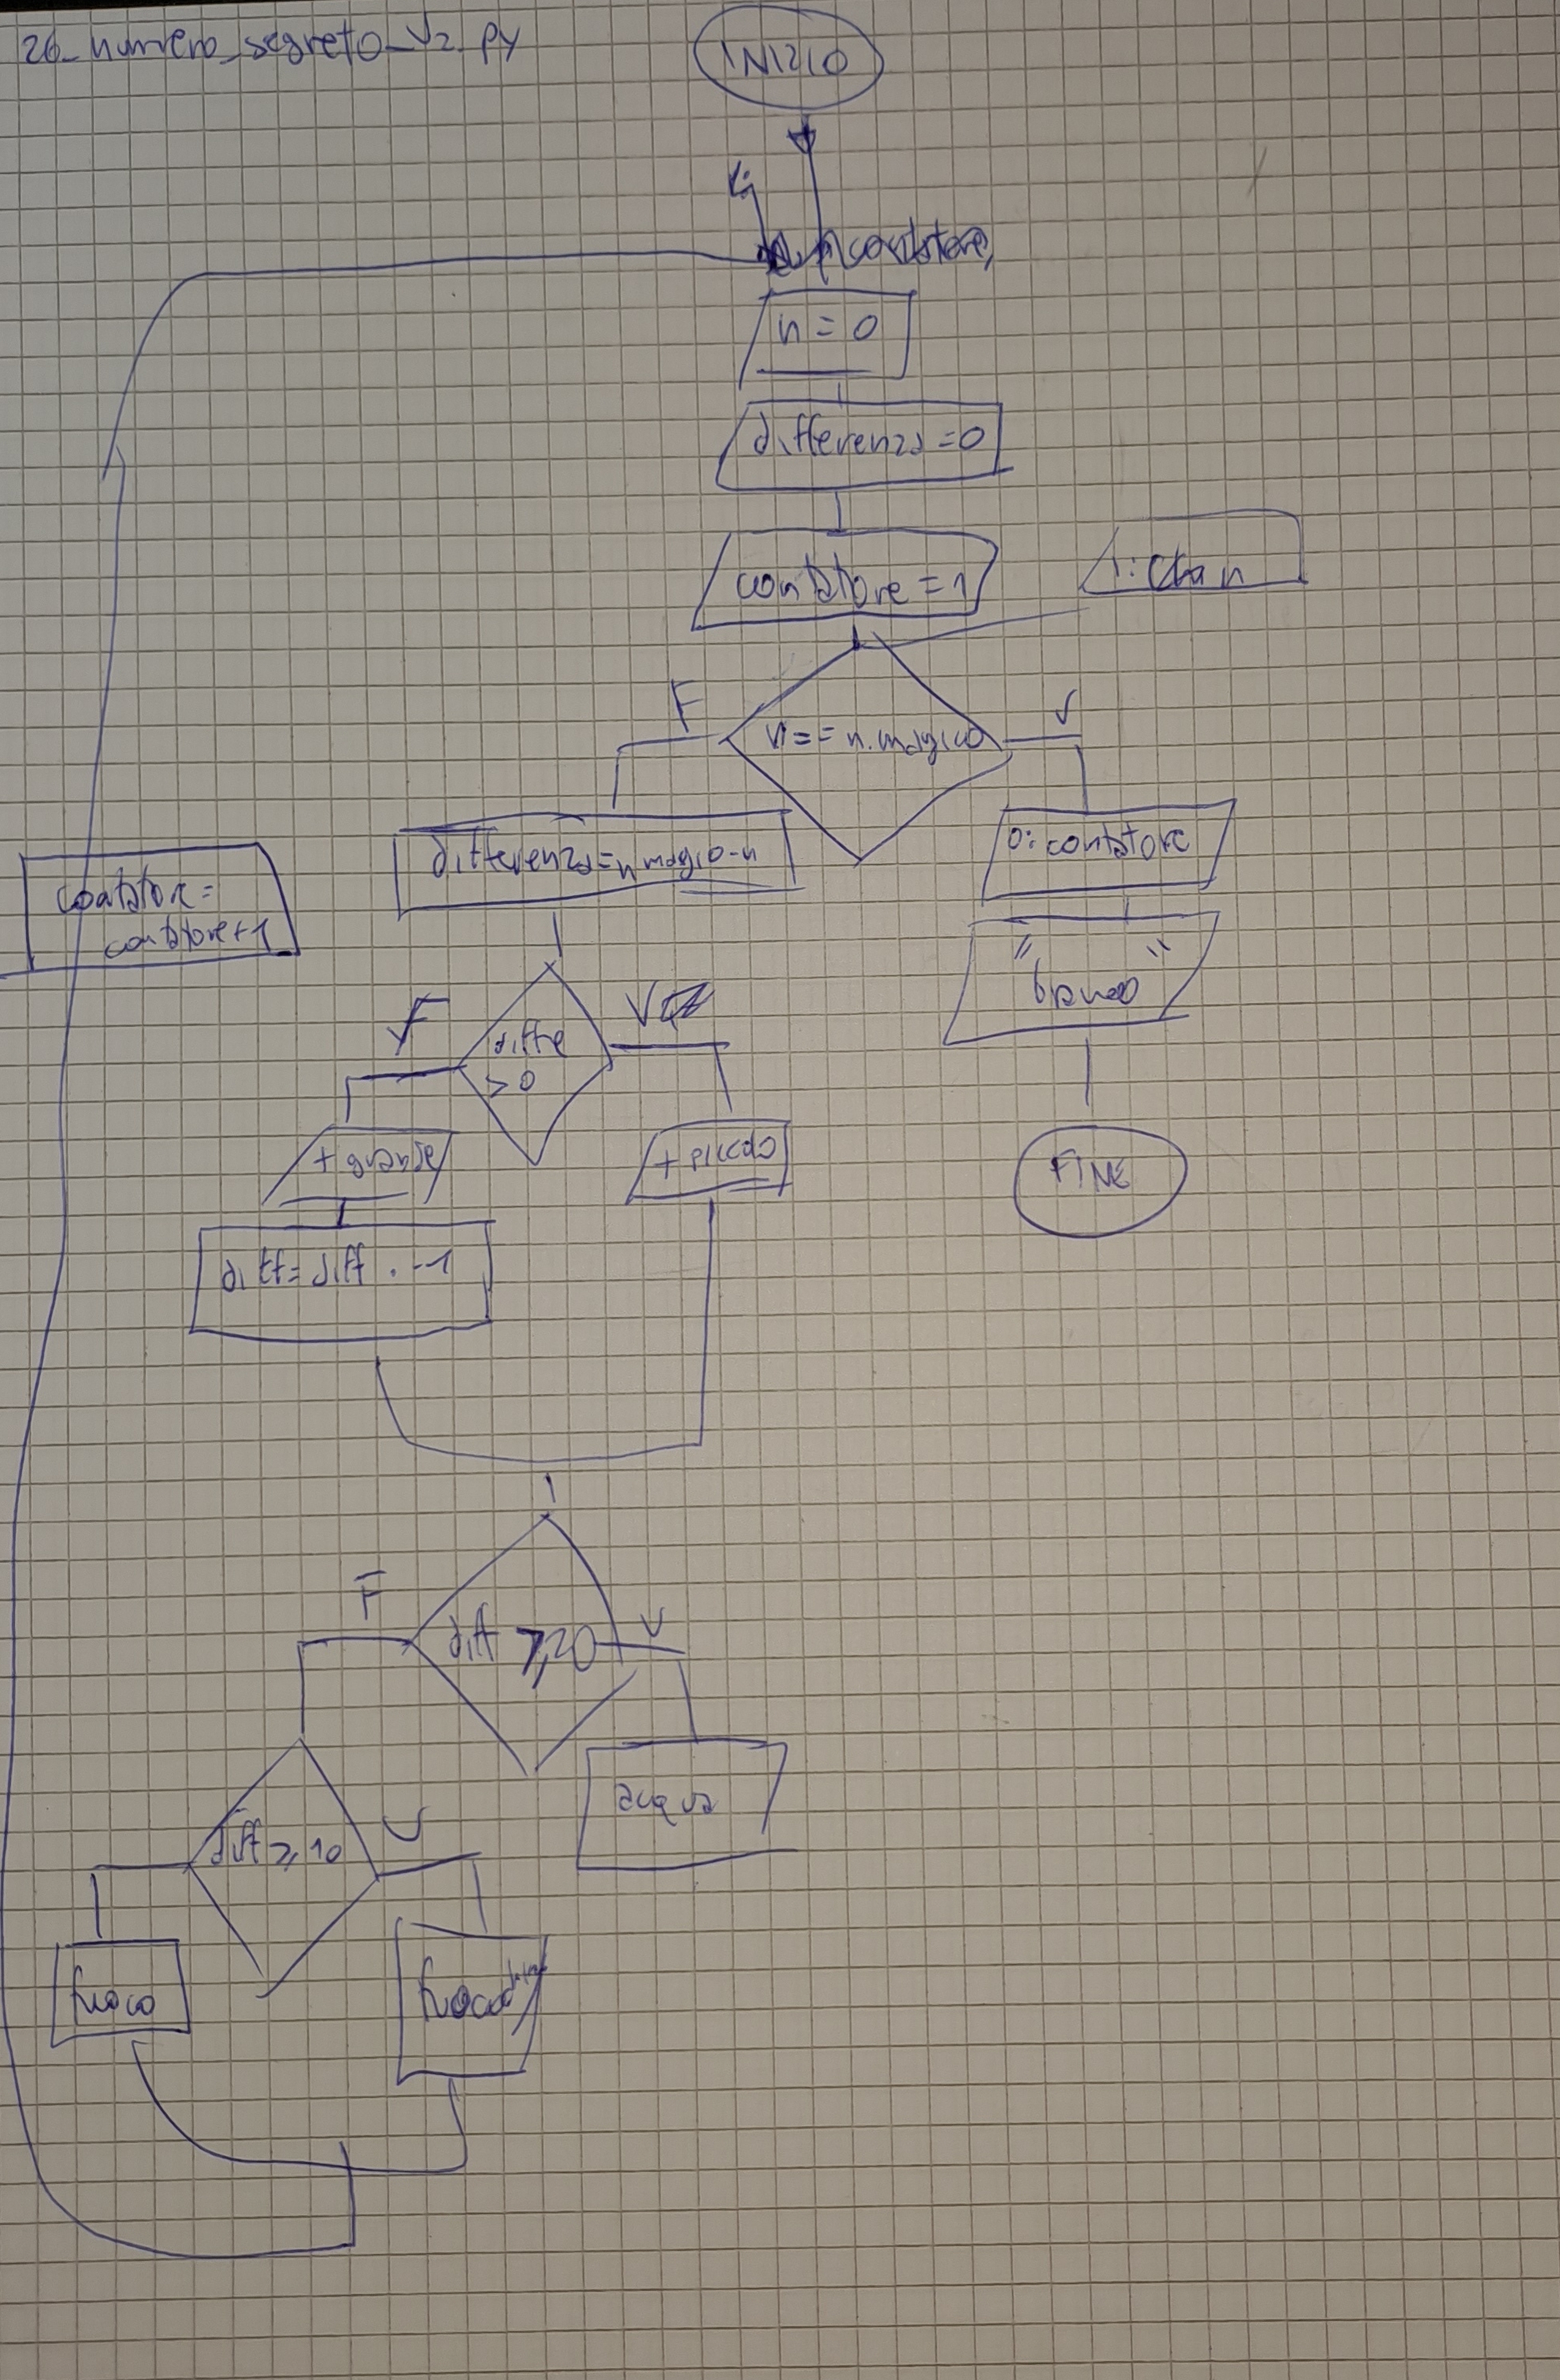 26_numero_segreto_v2.py
INIZIO
contatore,
n = 0
differenza = 0
contatore = 1
I: n
F
n == n.magico
V
differenza = n magio - n
O: contatore
contatore =
contatore + 1
"bravo"
F
diffe
> 0
V
+ grande
+ piccolo
FINE
diff = diff . -1
F
diff ≥ 20
V
acqua
diff ≥ 10
V
fuoco